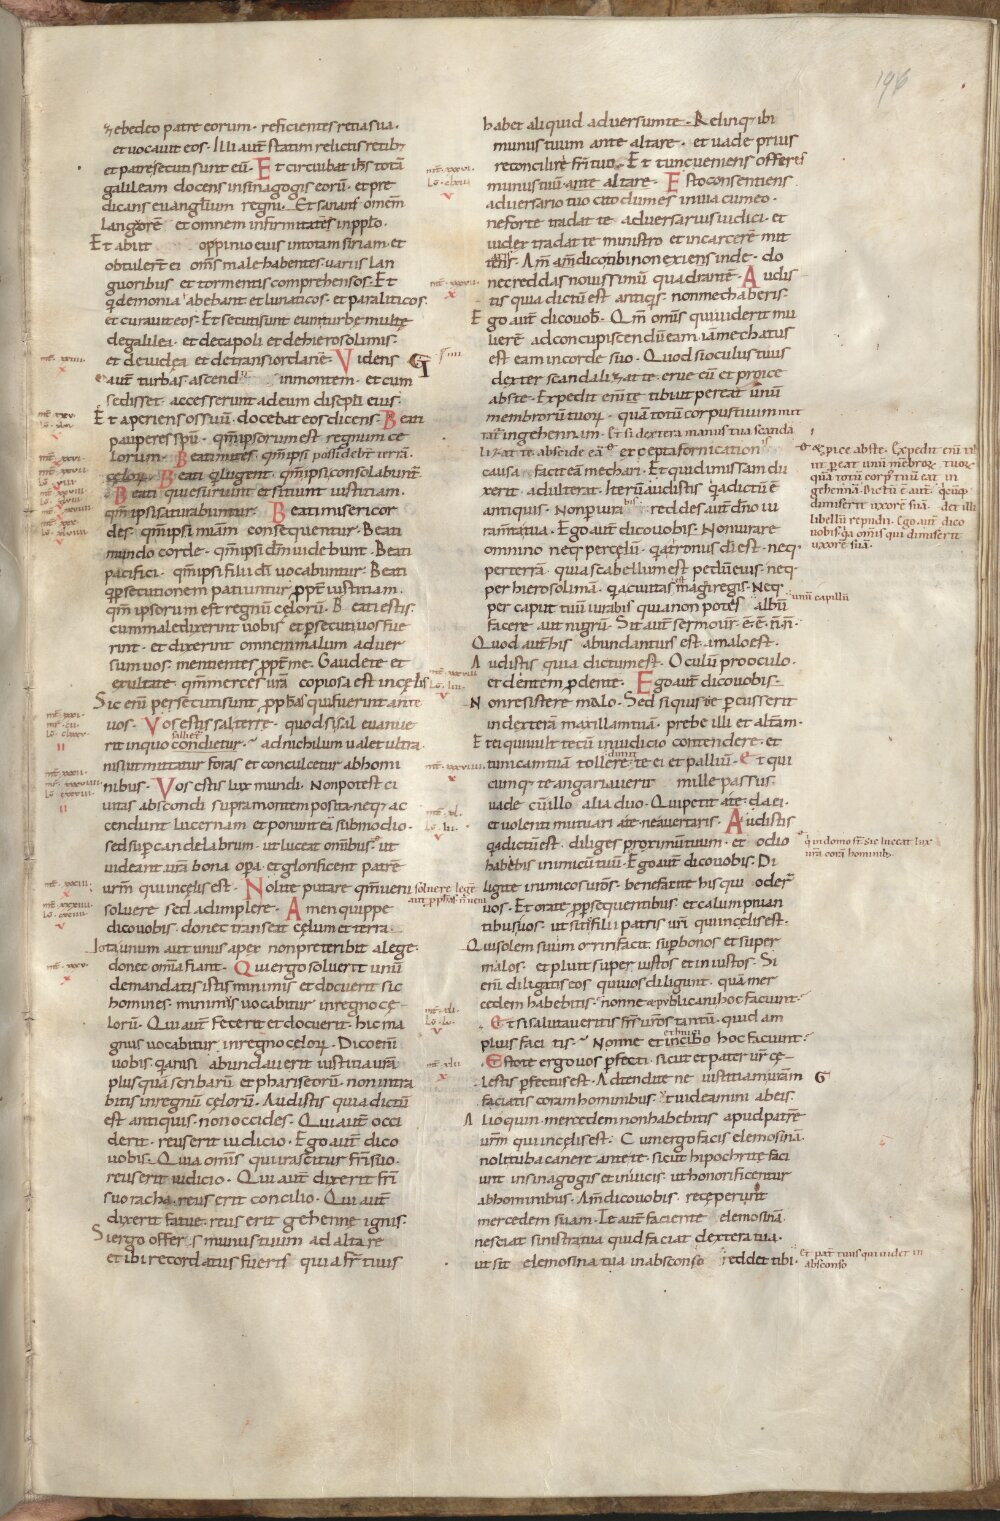 196
zebedeo patre eorum · reficientes retia sua ·
et vocavit eos · Illi aut̄ statim relictis retib;
et patre secuti sunt eū · Et circuibat ihs̄ totā
galileam docens in sinagogis eorū · et pre
dicans evangl̄ium regni · Et sanans omēm
languorē et omnem infirmitatē in pp̄lo ·
Et abiit oppinio eius in totam siriam · et
obtuler̄t ei om̄s male habentes · variis lan
guoribus et tormentis comprehensos · Et
q̇ demonia habebant et lunaticos · et paraliticos ·
et curavit eos · Et secutę sunt eum turbę multę
de galilea · et decapoli et de hierosolimis ·
et de iudęa et de trans iordanē · Videns
aut̄ turbas · ascendit in montem · et cum
sedisset · accesserunt ad eum discip̄li eius ·
Et aperiens os suū · docebat eos dicens · Beati
pauperes sp̄u · qm̄ ipsorum est regnum cę
lorum · Beati mites · qm̄ ipsi possidebt̄ terrā ·
Beati qui lugent · qm̄ ipsi consolabunt̄
Beati qui esuriunt et sitiunt iustitiam ·
qm̄ ipsi saturabuntur · Beati misericor
des · qm̄ ipsi miām consequentur · Beati
mundo corde · qm̄ ipsi dm̄ videbunt · Beati
pacifici · qm̄ ipsi filii di̅ vocabuntur · Beati
q̇ p̱secutionem patiuntur p̱pt̄ iustitiam ·
qm̄ ipsorum est regnū cęlorū · Beati estis ·
cum maledixerint vobis et p̱secuti vos fue
rint · et dixerint omne malum adver
sum vos · mentientes p̱pt̄ me · Gaudete et
exultate qm̄ merces vr̄a copiosa est in cęlis
Sic enī persecuti sunt p̱phās qui fuerunt ante
vos · Vos estis sal terrę · quod si sal evanue
rit in quo condietur · ad nichilum valet ultra ·
nisi ut mittatur foras et conculcetur ab homi
nibus · Vos estis lux mundi · Non potest ci
vitas abscondi supra montem posita · neq; ac
cendunt lucernam et ponunt eā sub modio ·
sed sup̱ candelabrum · ut luceat omīb; · ut
videant vr̄a bona op̱a · et glorificent patrē
vr̄m qui in cęlis est · Nolite putare qm̄ veni solvere legē
aut p̱phās · n̄ veni
solvere sed adimplere · Amen quippe
dico vobis · donec transeat cęlum et terra
Iota unum aut unus apex non preteribit a lege ·
donec om̄a fiant · Qui ergo solverit unū
de mandatis istis minimis et docuerit sic
homines · minimus vocabitur in regno cę
lorū · Qui aut̄ fecerit et docuerit · hic ma
gnus vocabitur in regno cęlorꝝ · Dico enī
vobis · q̇a nisi abundaverit iustitia vr̄a
plus quā scribarū et phariseorū · non intra
bitis in regnū cęlorū · Audistis quia dictū
est antiquis · non occides · Qui aut̄ occi
derit · reus erit iudicio · Ego aut̄ dico
vobis · Quia omīs qui irascitur fr̄i suo ·
reus erit iudicio · Qui aut̄ dixerit fr̄i
suo racha · reus erit concilio · Qui aut̄
dixerit fatue · reus erit gehennę ignis ·
Si ergo offers munus tuum ad altare
et ibi recordatus fueris quia fr̄ tuus
habet aliquid adversum te · Relinq; ibi
munus tuum ante altare · et vade prius
reconciliare fr̄i tuo · Et tunc veniens offeres
munus tuū ante altare · Esto consentiens
adversario tuo cito dum es in via cum eo ·
ne forte tradat te adversarius iudici · et
iudex tradat te ministro et in carcerē mit
taris · Am̄ am̄ dico tibi non exiens inde · do
nec reddas novissimū quadrantē · Audis
tis quia dictū est antiqis · non mechaberis ·
Ego aut̄ dico vob̄ · Qm̄ omīs qui viderit mu
lierē ad concupiscendū eam · iam mechatus
est eam in corde suo · Quod si oculus tuus
dexter scandalizat te · erue eū et proice
abs te · Expedit enī te tibi ut pereat unū
membrorū tuorꝝ · quā totū corpus tuum mit
tat̄ in gehennam · Et si dextera manus tua scanda
lizat te abscide eā et excepta fornicationis
causa · facit eā mechari · Et qui dimissam du
xerit · adulterat · Iterū audistis q̇a dictū ē
antiquis · Non periurabis · reddes aut̄ dn̄o iu
ramta tua · Ego aut̄ dico vobis · Non iurare
omnino neq; per cęlū · q̇a tronus di̅ est · neq;
per terrā · quia scabellum est pedū eius · neq;
per hierosolimā · q̇a civitas magni regis · Neq;
per caput tuū iurabis quia non potes unū capillū albū
facere aut nigrū · Sit aut̄ sermo vr̄ · ē · ē · n̄ · n̄ ·
Quod aut̄ his abundantius est · a malo est ·
Audistis quia dictum est · Oculū pro oculo ·
et dentem p̱ dente · Ego aut̄ dico vobis ·
Non resistere malo · Sed si quis te percusserit
in dexterā maxillam tuā · prebe illi et altam ·
Et ei qui vult tecū in iudicio contendere · et
tunicam tuā tollere · dimitte ei et palliū · Et qui
cumq; te angariaverit mille passus ·
vade cū illo alia duo · Qui petit a te · da ei ·
et volenti mutuari a te · ne avertaris · Audistis
q̇a dictū est · diliges proximū tuum · et odio
habebis inimicū tuū · Ego aut̄ dico vobis · Di
ligite inimicos vr̄os · benefacite his qui oder̄
vos · Et orate p̱ p̱sequentibus · et calumpnian
tibus vos · ut sitis filii patris vr̄i qui in cęlis est ·
Qui solem suum oriri facit sup̱ bonos et super
malos · et pluit super iustos et iniustos · Si
enī diligatis eos qui vos diligunt · quā mer
cedem habebitis · nonne et publicani hoc faciunt ·
Et si salutaveritis fr̄s vr̄os tantū · quid am
plius facitis · Nonne et ethnici hoc faciunt ·
Estote ergo vos p̱fecti · sicut et pater vr̄ cę
lestis p̱fectus est · Adtendite ne iustitiam vr̄am
faciatis coram hominibus · ut videamini ab eis ·
Alioquin mercedem non habebitis apud patrē
vr̄m qui in cęlis est · Cum ergo facis elemosinā
noli tuba canere ante te · sicut hipochritę faci
unt in sinagogis et in vicis · ut honorificentur
ab hominibus · Am̄ dico vobis receperunt
mercedem suam · Te aut̄ faciente elemosinā
nesciat sinistra tua quid faciat dextera tua ·
ut sit elemosina tua in absconso reddet tibi ·
et proice abs te · Expedit enī tibi
ut p̱eat unū mēbrorꝝ tuorꝝ
quā totū corp̄ tuū eat in
gehennā · Dictū ē aut̄ · q̇cūq;
dimiserit uxorē suā · det illi
libellū repudii · Ego aut̄ dico
vobis · q̇a omīs qui dimiserit
uxorē suā ·
q̇ in domo s̄t · Sic luceat lux
vr̄a corā hominib;
et pat̄ tuus qui videt in
absconso